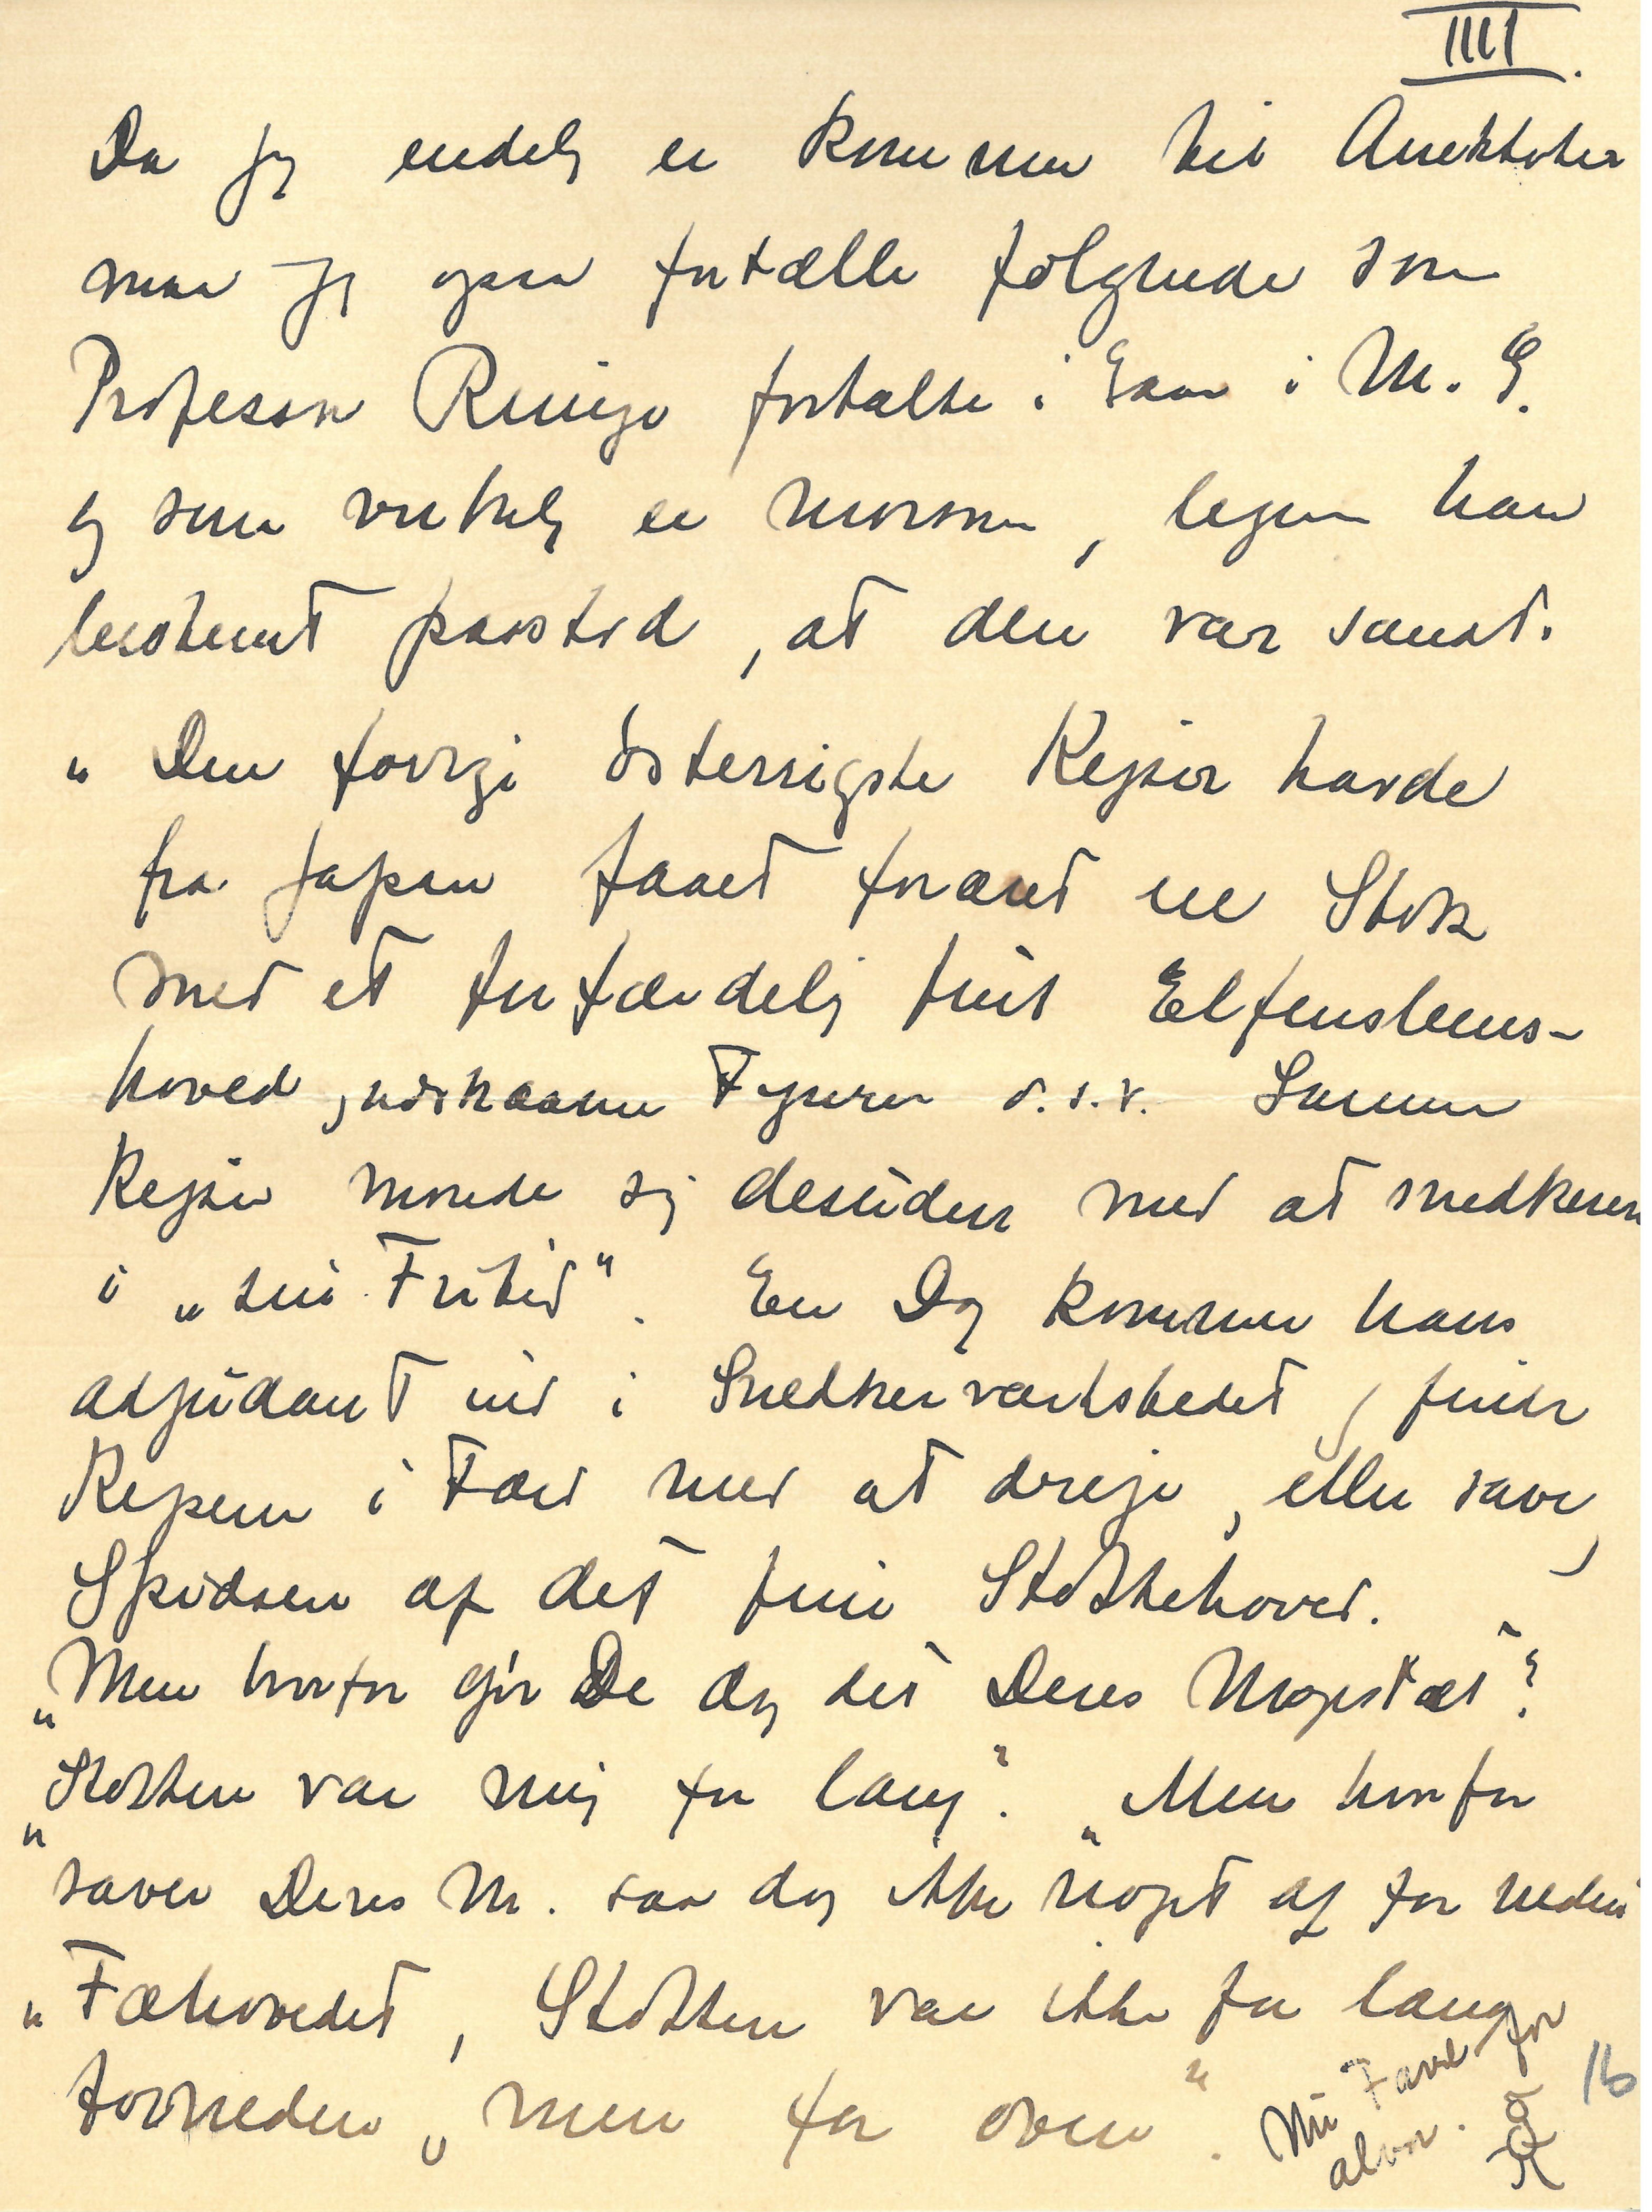 IIII.
Da jeg endelig er kommen til Anekdoter
maa jeg ogsaa fortælle følgende som
Professor fortalte i Gaar i M. G.
og som virkelig er morsom, legsom han
bestemt paastod, at den var sand.
„Den forrige österrigste Kejser havde
fra Japan faaet foræret en Stok
med et forfærdelig fint Elfensbens-
hoved, udskaarne Figurer o.s.v. Samme
Kejser morede sig desuden med at snedkerere
i „sin Fritid". En Dag kommer hans
Adjudant ind i Snedkerværkstedet, finder
Kejseren i Færd med at dreje, eller save,
Spidsen af det fine Stokkehoved.
„Men hvorfor gør De dog det Deres Majestæt"?
„Stokken var mig for lang". „Men hvorfor
saver Deres M. saa dog ikke noget af for neden"
„Fæhovedet, Stokken var ikke for lang
forneden, men for oven".
Nu Farvel for
alvor.
16